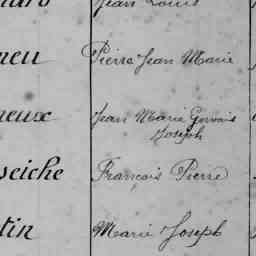 Jean Louis
neu Pierre Jean Marie
neux Jean Marie Gervais
Joseph
seiche François Pierre
tin Marie Joseph